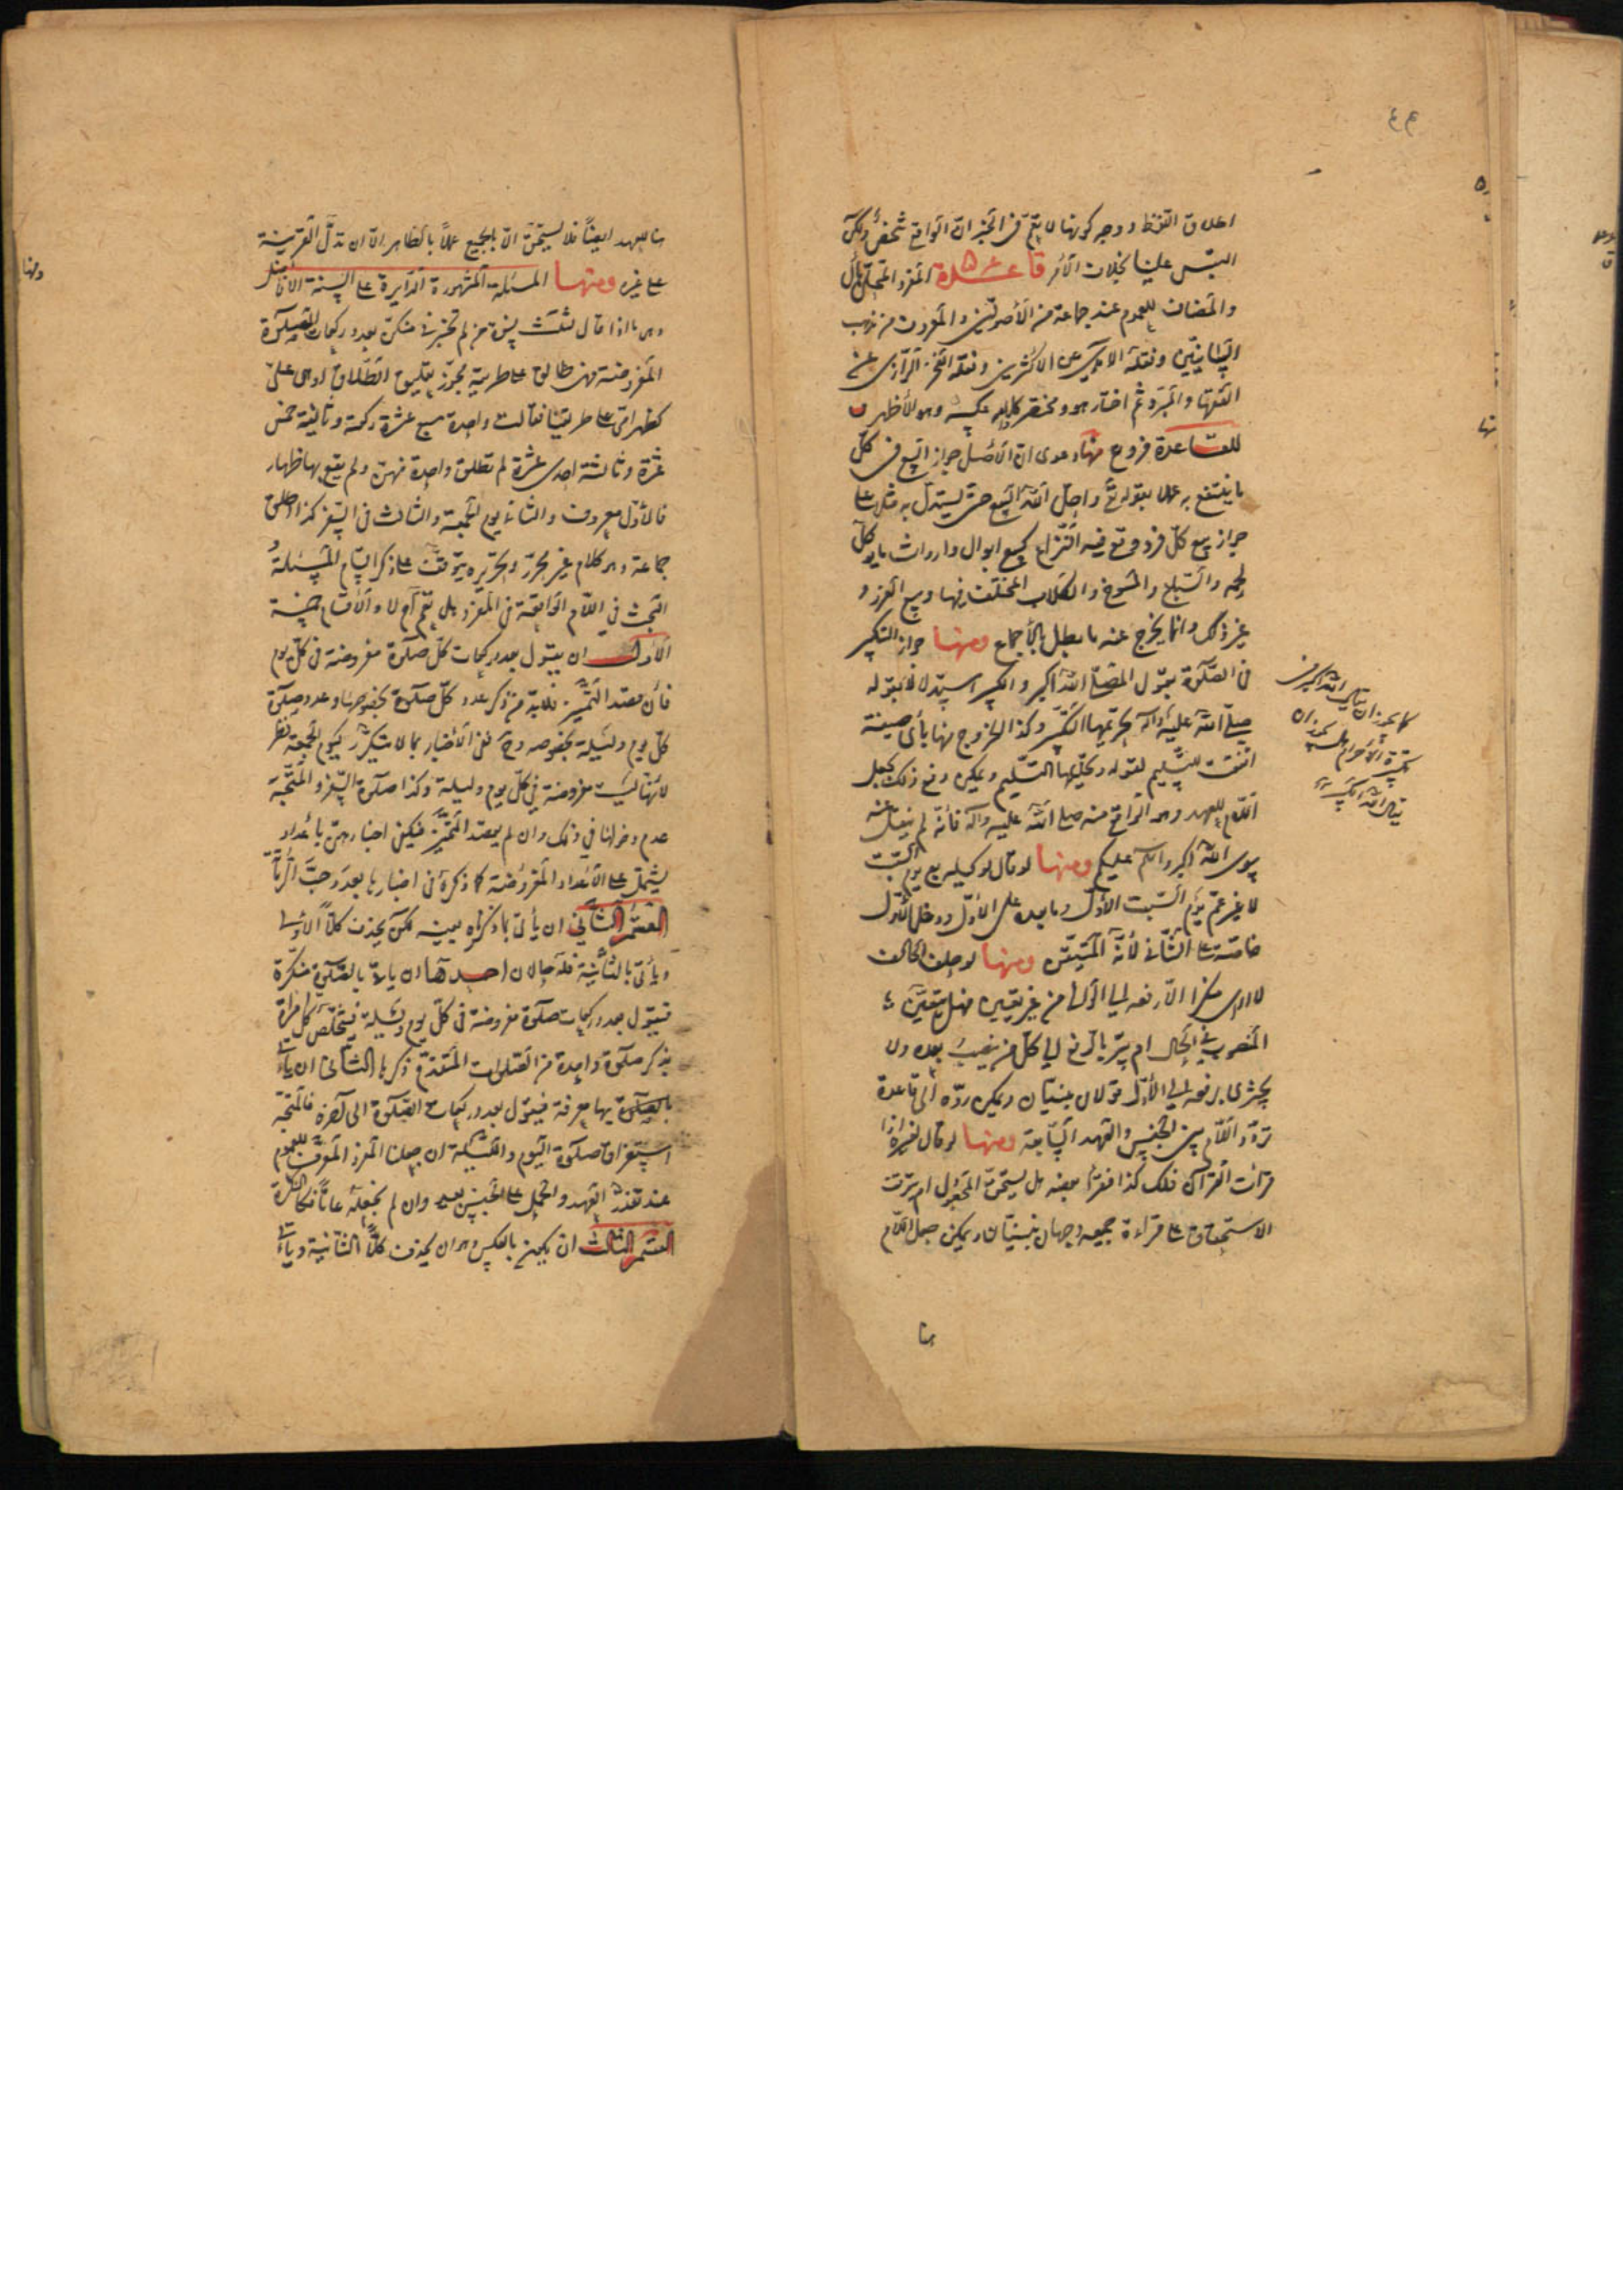 اطلاق اللفظ ووجه كونها لا يعم في الخبر ان الواقع شخص ولكن
التبس علينا بخلاف الامر قاعدة المفرد المحلى بأل
والمضاف للعموم عند جماعة من الأصوليين والمعروف من مذهب
البيانيين ونقله الآمدي عن الاكثرين ونقله الفخر الرازي عن
الفقهاء والمبرد ثم اختار هو ومختصر كلامه عكسه وهو الأظهر
للقاعدة فروع منها دعوى ان الأصل جواز البيع في كل
ما ينتفع به عملا بقوله تعالى واحل الله البيع حتى يستدل به مثلا على
جواز بيع كل فرد وقع فيه النزاع كبيع ابوال وارواث ما يؤكل
لحمه والسباع والمسوخ والكلاب المختلف فيها وبيع الغرر و
غير ذلك وانما يخرج عنه ما بطل بالأجماع ومنها جواز التكبير
في الصلوة بقول المصلي الله اكبر والكبير استدلالا بقوله
صلى الله عليه وآله تحريمها التكبير وكذا الخروج منها بأي صيغة
اتفقت للتسليم لقوله وتحليلها التسليم ويمكن دفع ذلك بجعل
اللام للعهد وهو الواقع منه صلى الله عليه وآله فانه لم ينقل عنه
سوى الله اكبر والسلم عليكم ومنها لو قال لوكيله بع يوم السبت
لا غير عم يوم السبت الأول وما بعده على الأول ودخل الأول
خاصة على الثاني لأنه المتيقن ومنها لو حلف الحالف
لا ارى منكرا الا رفعه الى الوالي من غير تعيين فهل يتعين
المنصوب في الحال ام يبر بالرفع الى كل من ينصب بعده ولا
يجزي رفعه الى الأول قولان مبنيان ويمكن رده الى قاعدة
تردد اللام بين الجنس والعهد السابقة ومنها لو قال لغيره اذا
قرأت القرآن فلك كذا فقرأ بعضه هل يستحق المجعول ام يترتب
الاستحقاق على قراءة جميعه وجهان مبنيان ويمكن جعل اللام
هنا
كما يجوز ان يقال الله اكبر في
تكبيرة الأحرام هل يجوز ان
يقال الله الكبير
هنا للعهد ايضاً فلا يستحق الا بالجميع عملاً بالظاهر الا ان تدل القرينة
على غيره ومنها المسئلة المشهورة الدايرة على السنة الافاضل
وهي ما اذا قال لثلث نسوة من لم تخبرني منكن بعدد ركعات الصلوة
المفروضة فهي طالق على طريقة يجوز تعليق الطلاق او هي علي
كظهر امي على طريقتنا فقالت واحدة سبع عشرة ركعة وثانية خمس
عشرة وثالثة احدى عشرة لم تطلق واحدة منهن ولم يقع بها ظهار
فالأول معروف والثاني يوم الجمعة والثالث في السفر كذا اطلق
جماعة وهو كلام غير محرر وتحريره يتوقف على ذكر اقسام للمسئلة
البحث في اللام الواقعة في المفرد هل تعم ام لا والأقسام خمسة
الأول ان يقول بعدد ركعات كل صلوة مفروضة في كل يوم
فأن قصد التمييز فلا بد من ذكر عدد كل صلوة بخصوصها وعدد صلوة
كل يوم وليلة بخصوصه وح ففي الأخبار بما لا يتكرر كيوم الجمعة نظر
لأنها ليست مفروضة في كل يوم وليلة وكذا صلوة السفر والمتجه
عدم دخولها في ذلك وان لم يقصد التمييز فيكفي اخبارهن باعداد
يشتمل على الأعداد المفروضة كما ذكره في اخبارها بعدد حب الرمان
القسم الثاني ان يأتي بما ذكرناه بعينه لكن يحذف كلاً الاولى
ويأتي بالثانية فله حالان احدهما ان يأتي بالصلوة منكرة
فيقول بعدد ركعات صلوة مفروضة في كل يوم وليلة فتتخلص كل امراة
بذكر صلوة واحدة من الصلوات المتقدم ذكرها الثاني ان يأتي
بالصلوة بها معرفة فيقول بعدد ركعات الصلوة الى آخره فالمتجه
استغراق صلوة اليوم والليلة ان جعلنا المفرد المعرف للعموم
عند تعذر العهد والحمل على الجنس بعيد وان لم نجعله عاماً فكالنكرة
القسم الثالث ان يكون بالعكس وهو ان يحذف كلاً الثانية ويأتي
ومنها